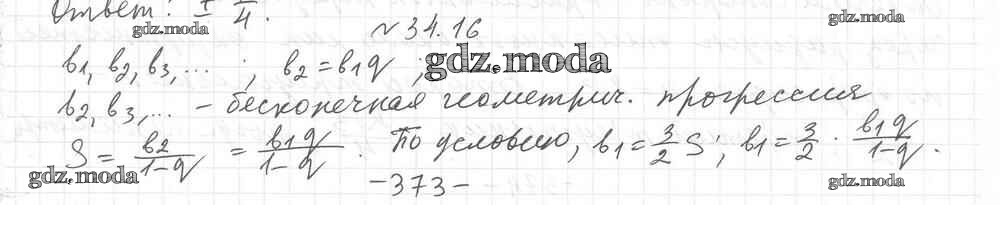 Ответ: ± 1/4.
gdz.moda gdz.moda
№ 34.16
b1, b2, b3, ... ; b2 = b1q ; gdz.moda
b2, b3, ... – бесконечная геометрич. прогрессия
S = b2/(1-q) = b1q/(1-q). По условию, b1 = 3/2 S; b1 = 3/2 · b1q/(1-q).
gdz.moda -373- gdz.moda